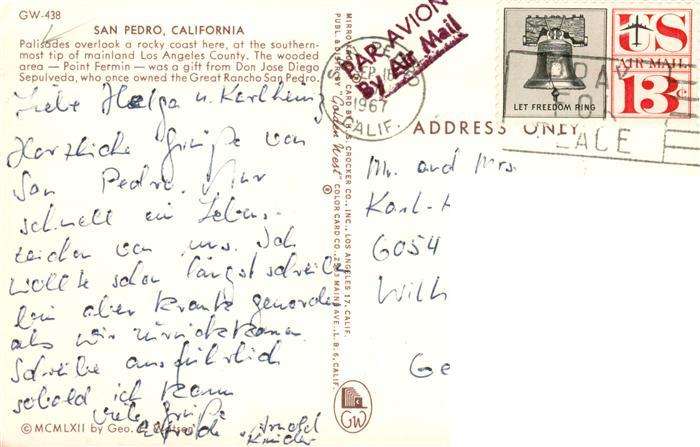 GW-438
SAN PEDRO, CALIFORNIA
Palisades overlook a rocky coast here, at the southern-
most tip of mainland Los Angeles County. The wooded
area — Point Fermin — was a gift from Don Jose Diego
Sepulveda, who once owned the Great Rancho San Pedro.
Liebe Helga u. Karlheinz
Herzliche Grüße von
San Pedro. Nur
schnell ein Lebens-
zeichen von uns. Ich
wollte schon längst schreiben
bin aber krank geworden
als wir zurückkamen
Schreibe ausführlich
sobald ich kann
Viele Grüße
Elfriede Arnold
Kinder
© MCMLXII by Geo. E.
PUBL. & DIST. BY "Golden West" COLOR CARD CO.,
CARD BY H. S. CROCKER CO., INC., LOS ANGELES 17, CALIF.
GW
PAR AVION
By Air Mail
SEP 18
1967
CALIF.
PRAY
FOR
PEACE
LET FREEDOM RING
US
AIR MAIL
13c
ADDRESS ONLY
Mr. and Mrs.
Karl-H
6054
Ge